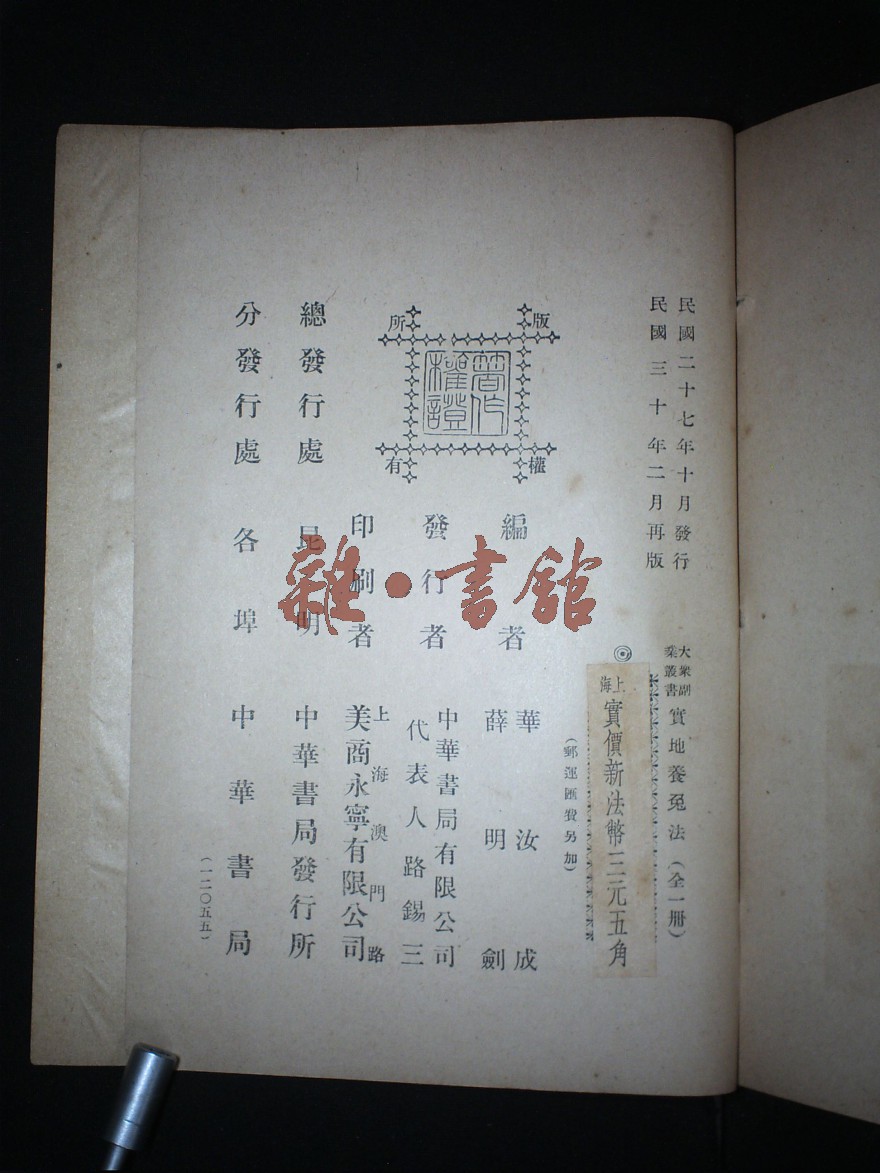 民國二十七年十月發行
民國三十年二月再版
大衆副業叢書 實地養兔法（全一册）
◎
上海 實價新法幣三元五角
（郵運匯費另加）
版權所有
著作權證
編者 華汝成
薛明劍
發行者 中華書局有限公司
代表人路錫三
印刷者 上海澳門路
美商永寧有限公司
總發行處 昆明 中華書局發行所
分發行處 各埠 中華書局
（一二〇五五）
雜·書館